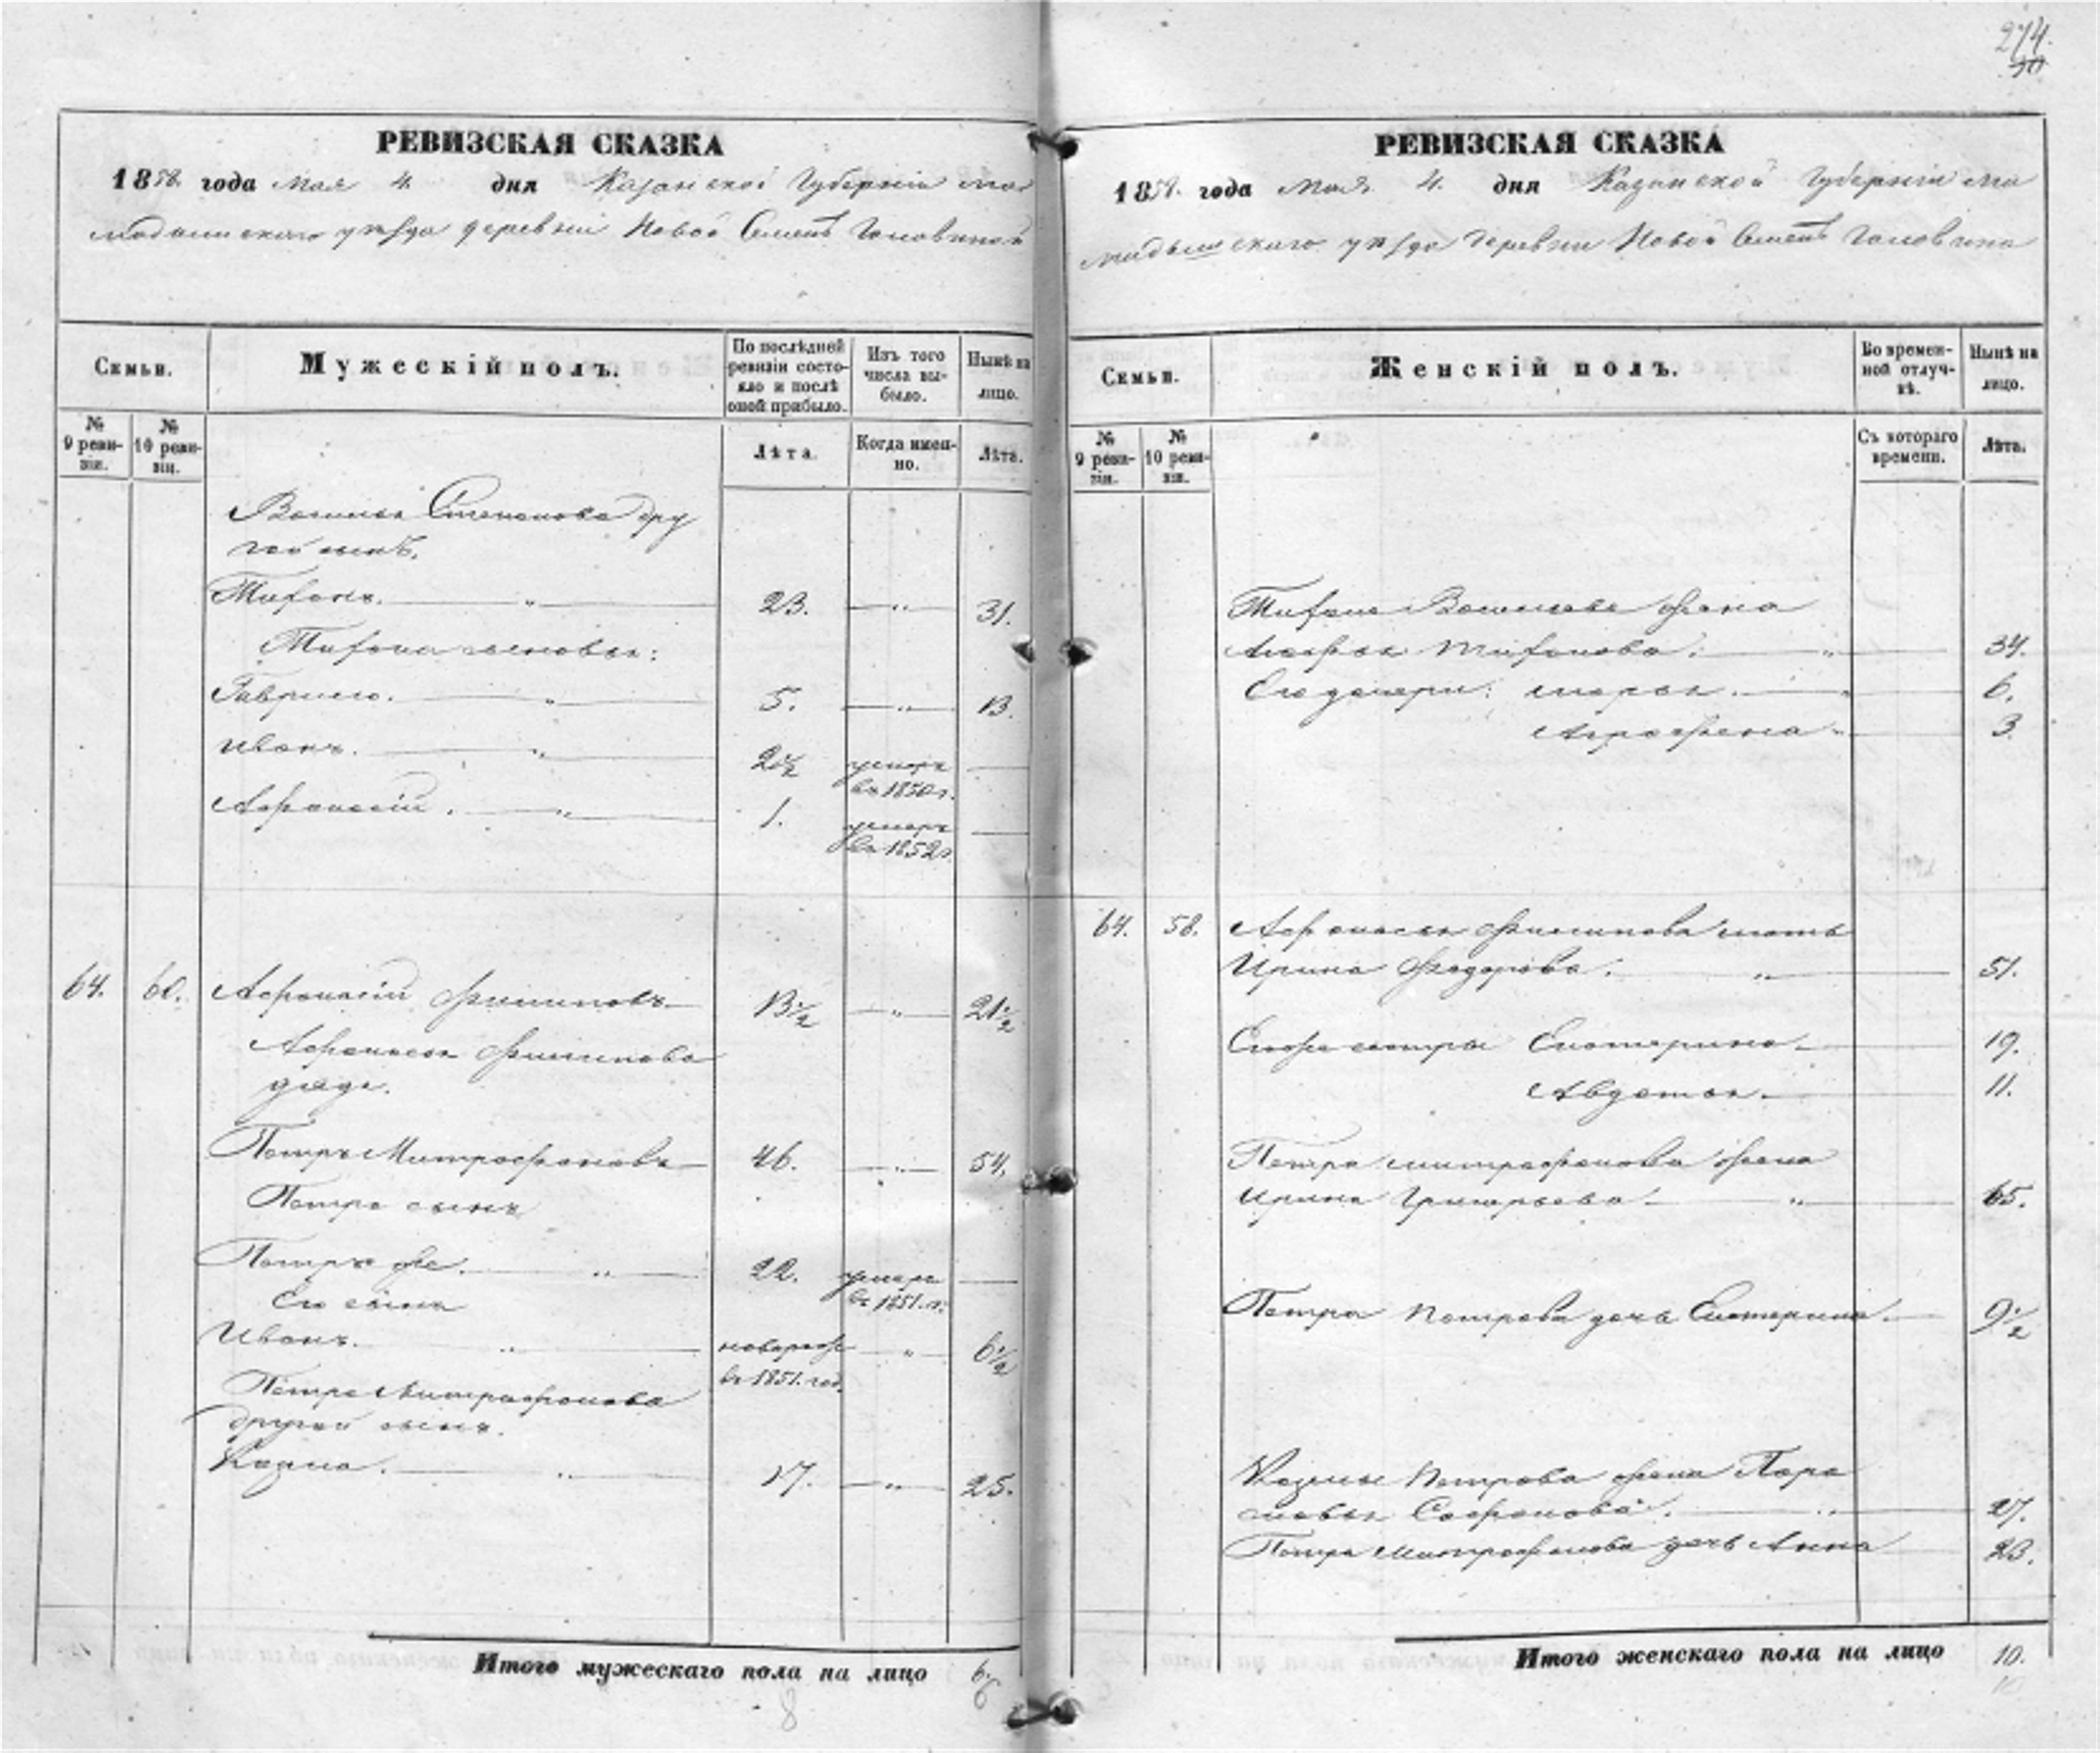 274.
30
РЕВИЗСКАЯ СКАЗКА
1858. года Мая 4. дня Казанской Губерніи Ма
мадышскаго уѣзда деревни Новой Головиной
Семьи.
Мужескій полъ.
По послѣдней ревизіи состояло и послѣ оной прибыло.
Изъ того числа выбыло.
Нынѣ на лицо.
№ 9 ревизіи.
№ 10 ревизіи.
Лѣта.
Когда именно.
Лѣта.
Василья Степанова дру
гой сынъ.
Тифонъ. 23. 31.
Тифона сыновья:
Гаврило. 5. 13.
Иванъ. 2½ умеръ въ 1850 г.
Афонасій. 1. умеръ въ 1852 г.
64. 60. Афонасій Филиповъ 13½ 21½
Афонасья Филипова
дядя.
Петръ Митрофановъ 46. 54.
Петра сынъ
Петръ же. 22. умеръ въ 1851. г.
Его сынъ
Иванъ. новорож въ 1851. год. 6½
Петра Митрофанова
другой сынъ.
Козма. 17. 25.
Итого мужескаго пола на лицо 6.
6
8
РЕВИЗСКАЯ СКАЗКА
1858. года Мая. 4. дня Казанской Губерніи Ма
мадышскаго уѣзда деревни Новой Головина
Семьи.
Женскій полъ.
Во временной отлучкѣ.
Нынѣ на лицо.
№ 9 ревизіи.
№ 10 ревизіи.
Съ котораго времени.
Лѣта.
Тифона Васильева жена
Тифонова. 34.
Его дочери: Марья. 6.
Аграфена 3.
64. 58. Афонасья Филипова мать
Ирина Федорова. 51.
Его же сестры Екатерина 19.
Авдотья. 11.
Петра Митрофанова жена
Ирина Григорьева. 65.
Петра Петрова дочь Екатерина. 9½
Козмы Петрова жена Пара
сковья Софронова. 27.
Петра Митрофанова дочь Анна 23.
Итого женскаго пола на лицо 10.
10